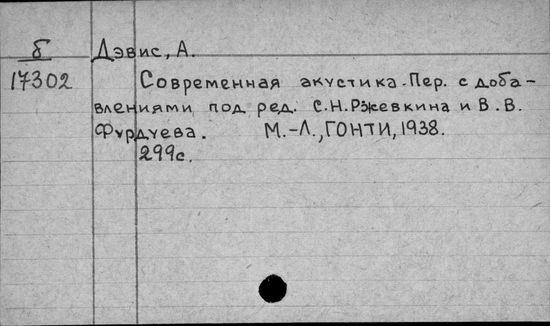 б Дэвис, А.
17302 Современная акустика. Пер. с доба-
влениями под ред. С.Н. Ржевкина и В.В.
Фурдуева. М.-Л., ГОНТИ, 1938.
299с.